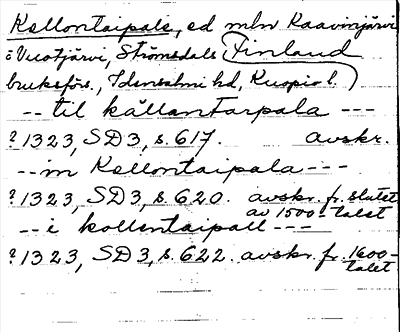 Kellontaipale, ed mln Kaavinjärvi
o Vuotjärvi, Strömsdals (Finland
bruksförs., Idensalmi hd, Kuopio l.)
-- til källantarpala ---
? 1323, SD 3, s. 617. avskr.
-- in Kellontaipala ---
? 1323, SD 3, s. 620. avskr. fr. slutet
av 1500-talet
-- i kollentaipall ---
? 1323, SD 3, s. 622. avskr. fr. 1600-
talet